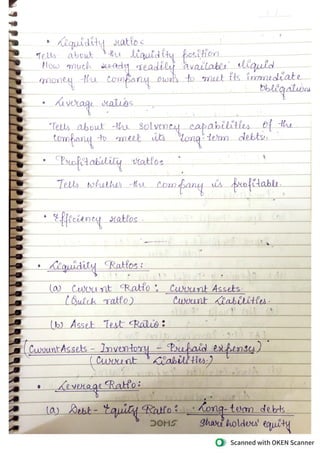 • Liquidity ratios
Tells about the liquidity position
How much ready readily available liquid
money the company owns to meet its immediate
obligations
• Leverage ratios
Tells about the solvency capabilities of the
company to meet its long-term debts.
• Profitability ratios
Tells whether the company is profitable.
• Efficiency ratios.
• Liquidity Ratios:
(a) Current Ratio : Current Assets
(Quick ratio) Current Liabilities.
(b) Asset Test Ratio :
(Current Assets - Inventory - Prepaid expenses)
(Current Liabilities.)
• Leverage Ratio:
(a) Debt - Equity Ratio : Long-term debts
Share holders' equity
DOMS
Scanned with OKEN Scanner